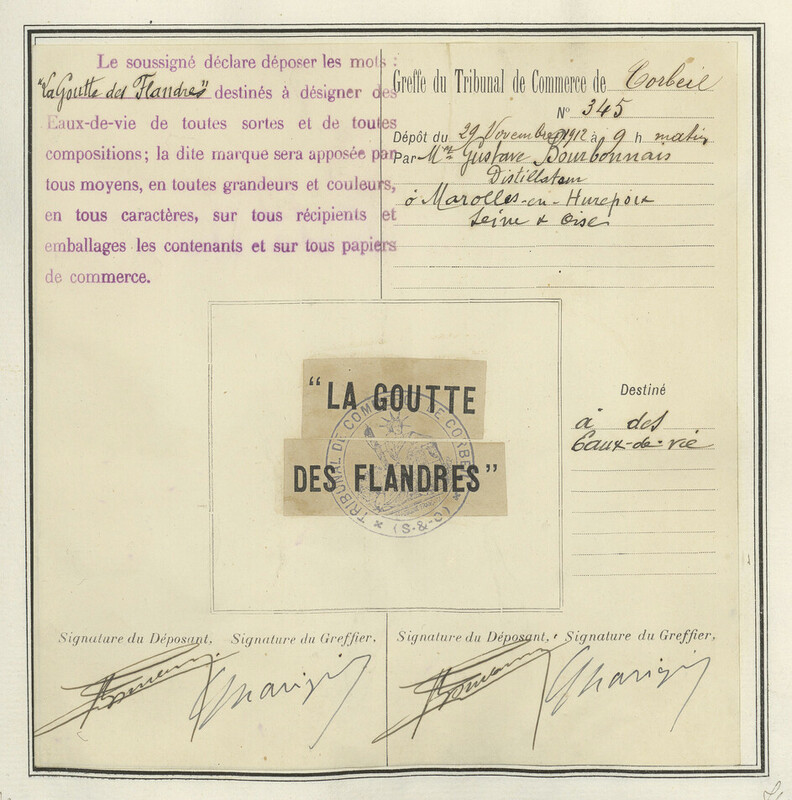 Le soussigné déclare déposer les mots :
"La Goutte des Flandres" destinés à désigner des
Eaux-de-vie de toutes sortes et de toutes
compositions ; la dite marque sera apposée par
tous moyens, en toutes grandeurs et couleurs,
en tous caractères, sur tous récipients et
emballages les contenants et sur tous papiers
de commerce.
Greffe du Tribunal de Commerce de Corbeil
N° 345
Dépôt du 29 Novembre 1912 à 9 h matin
Par Mr Gustave Bourbonnais
Distillateur
à Marolles-en-Hurepoix
Seine & Oise
"LA GOUTTE
DES FLANDRES"
TRIBUNAL DE COMMERCE DE CORBEIL
(S-&-O)
Destiné
à des
Eaux-de-vie
Signature du Déposant. Signature du Greffier.
Signature du Déposant. Signature du Greffier.